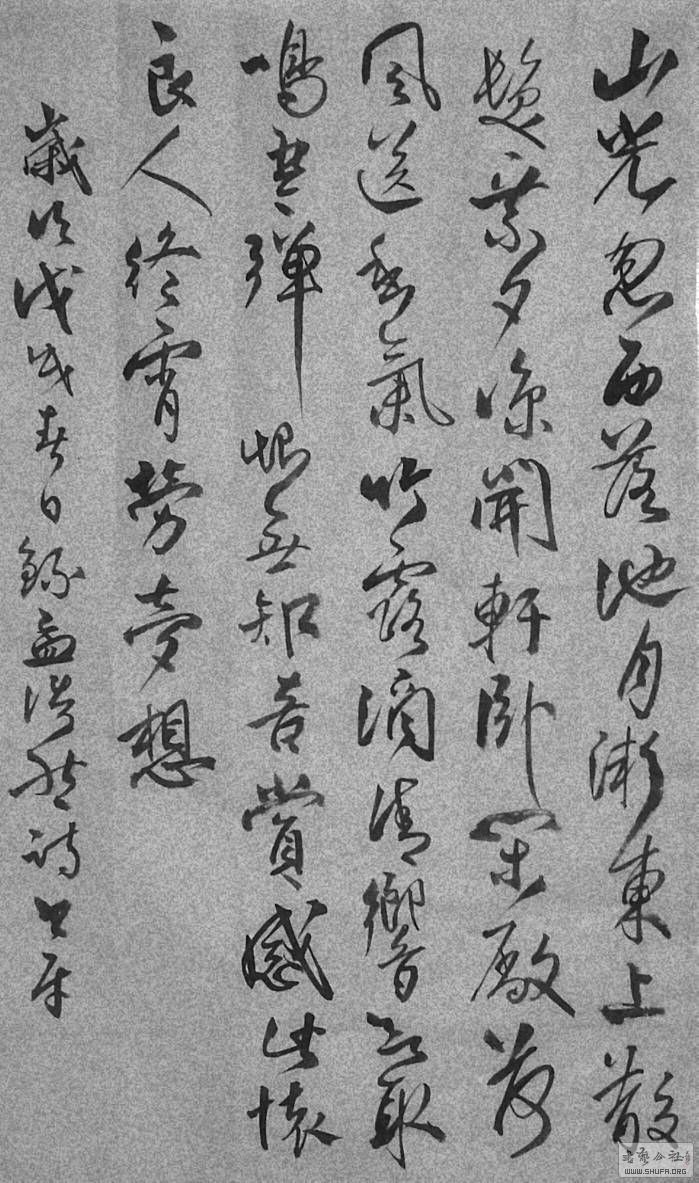 山光忽西落池月漸東上散
髮乘夕涼開軒卧閑敞荷
風送香氣竹露滴清響欲取
鳴琴彈恨無知音賞感此懷
良人終宵勞夢想
歲次戊戌春日錄孟浩然詩
书艺公社
WWW.SHUFA.ORG